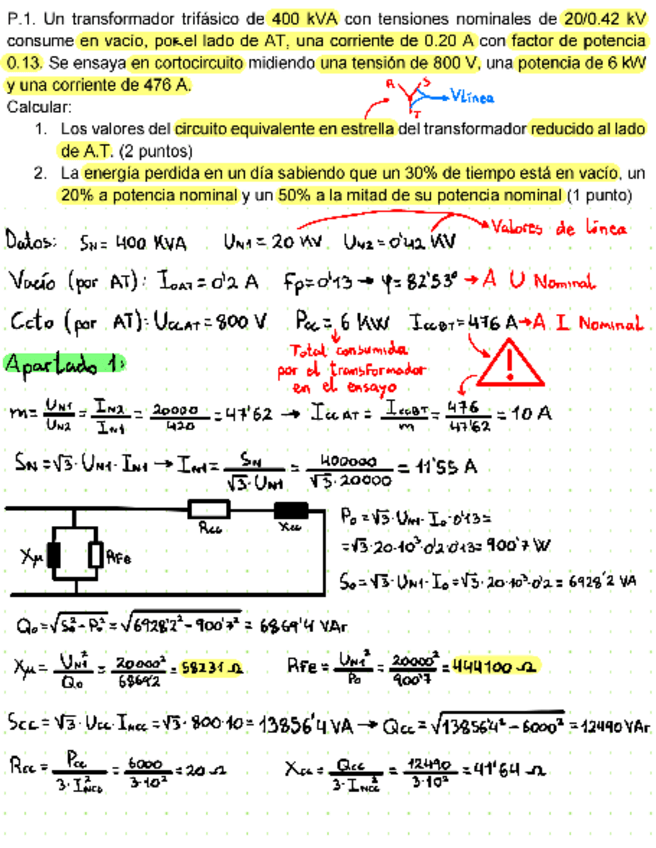 P.1. Un transformador trifásico de 400 kVA con tensiones nominales de 20/0.42 kV
consume en vacío, por el lado de AT, una corriente de 0.20 A con factor de potencia
0.13. Se ensaya en cortocircuito midiendo una tensión de 800 V, una potencia de 6 kW
y una corriente de 476 A.
Calcular:
R S T VLínea
1. Los valores del circuito equivalente en estrella del transformador reducido al lado
de A.T. (2 puntos)
2. La energía perdida en un día sabiendo que un 30% de tiempo está en vacío, un
20% a potencia nominal y un 50% a la mitad de su potencia nominal (1 punto)
Datos: SN = 400 KVA UN1 = 20 KV UN2 = 0'42 KV → Valores de línea
Vacío (por AT): I0AT = 0'2 A Fp = 0'13 → φ = 82'53º → A U Nominal
Ccto (por AT): UccAT = 800 V Pcc = 6 KW IccBT = 476 A → A I Nominal
Total consumida
por el transformador
en el ensayo
!
Apartado 1:
m = UN1/UN2 = IN2/IN1 = 20000/420 = 47'62 → Icc AT = IccBT/m = 476/47'62 = 10 A
SN = √3 · UN1 · IN1 → IN1 = SN/(√3 · UN1) = 400000/(√3 · 20000) = 11'55 A
Rcc Xcc
Xμ RFe
P0 = √3 · UN1 · I0 · 0'13 =
= √3 · 20 · 10³ · 0'2 · 0'13 = 900'7 W
S0 = √3 · UN1 · I0 = √3 · 20 · 10³ · 0'2 = 6928'2 VA
Q0 = √(S0² - P0²) = √(6928'2² - 900'7²) = 6869'4 VAr
Xμ = UN1²/Q0 = 20000²/6869'2 = 58231 Ω RFe = UN1²/P0 = 20000²/900'7 = 444100 Ω
Scc = √3 · Ucc · INcc = √3 · 800 · 10 = 13856'4 VA → Qcc = √(13856'4² - 6000²) = 12490 VAr
Rcc = Pcc/(3 · INcc²) = 6000/(3 · 10²) = 20 Ω Xcc = Qcc/(3 · INcc²) = 12490/(3 · 10²) = 41'64 Ω